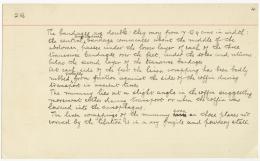 28
The bandages are double: they vary from 7 - 8 cms in width:
the central bandage commences about the middle of the
abdomen, passes under the lower layer of each of the three
transverse bandages over the feet, under the soles and returns
below the second layer of the transverse bandages
At each side of the feet the linen wrapping has been badly
rubbed, from friction against the side of the coffin during
transport in ancient times.
The mummy lies at a slight angle in the coffin suggesting
movement either during transport or when the coffin was
lowered into the sarcophagus
The linen wrappings of the mummy even in those places not
covered by the libations is in a very fragile and powdery state.